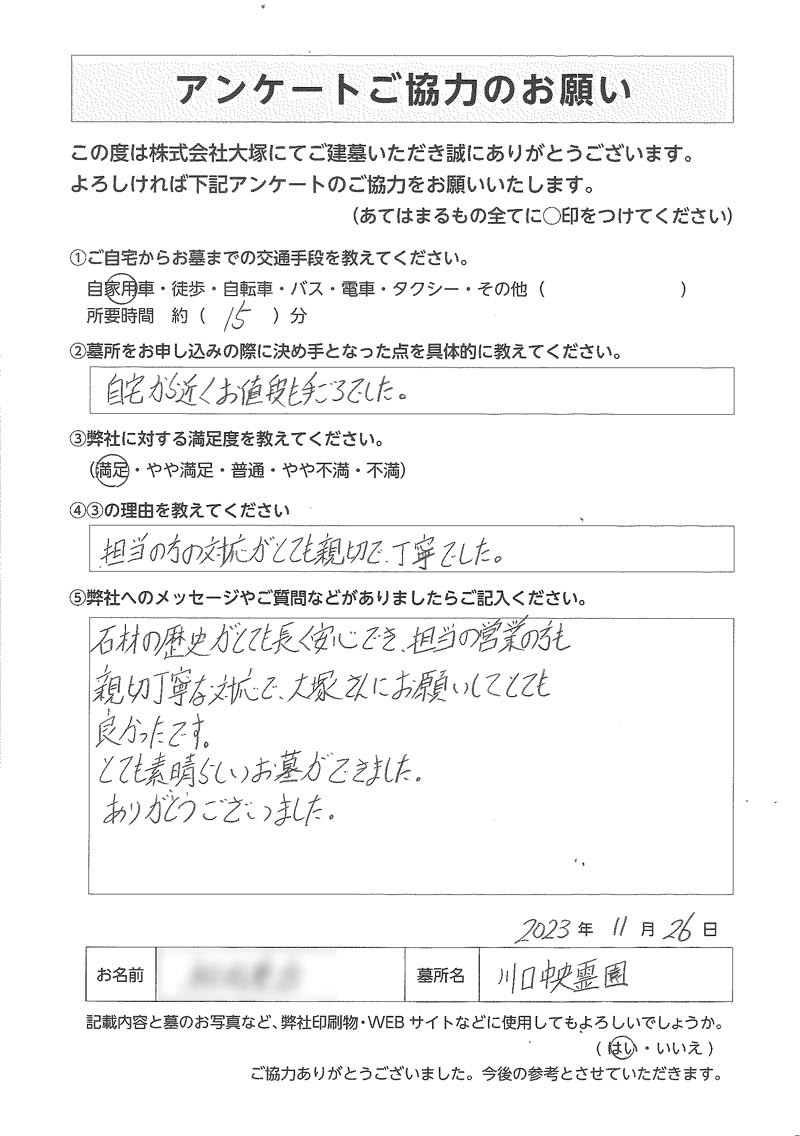 アンケートご協力のお願い
この度は株式会社大塚にてご建墓いただき誠にありがとうございます。
よろしければ下記アンケートのご協力をお願いいたします。
(あてはまるもの全てに○印をつけてください)
①ご自宅からお墓までの交通手段を教えてください。
自家用車・徒歩・自転車・バス・電車・タクシー・その他 ( )
所要時間 約 ( 15 ) 分
②墓所をお申し込みの際に決め手となった点を具体的に教えてください。
自宅から近くお値段も手ごろでした。
③弊社に対する満足度を教えてください。
(満足・やや満足・普通・やや不満・不満)
④③の理由を教えてください
担当の方の対応がとても親切で、丁寧でした。
⑤弊社へのメッセージやご質問などがありましたらご記入ください。
石材の歴史がとても長く安心でき、担当の営業の方も
親切丁寧な対応で、大塚さんにお願いしてとても
良かったです。
とても素晴らしいお墓ができました。
ありがとうございました。
2023 年 11 月 26 日
お名前 墓所名 川口中央霊園
記載内容と墓のお写真など、弊社印刷物・WEB サイトなどに使用してもよろしいでしょうか。
( はい・いいえ )
ご協力ありがとうございました。今後の参考とさせていただきます。